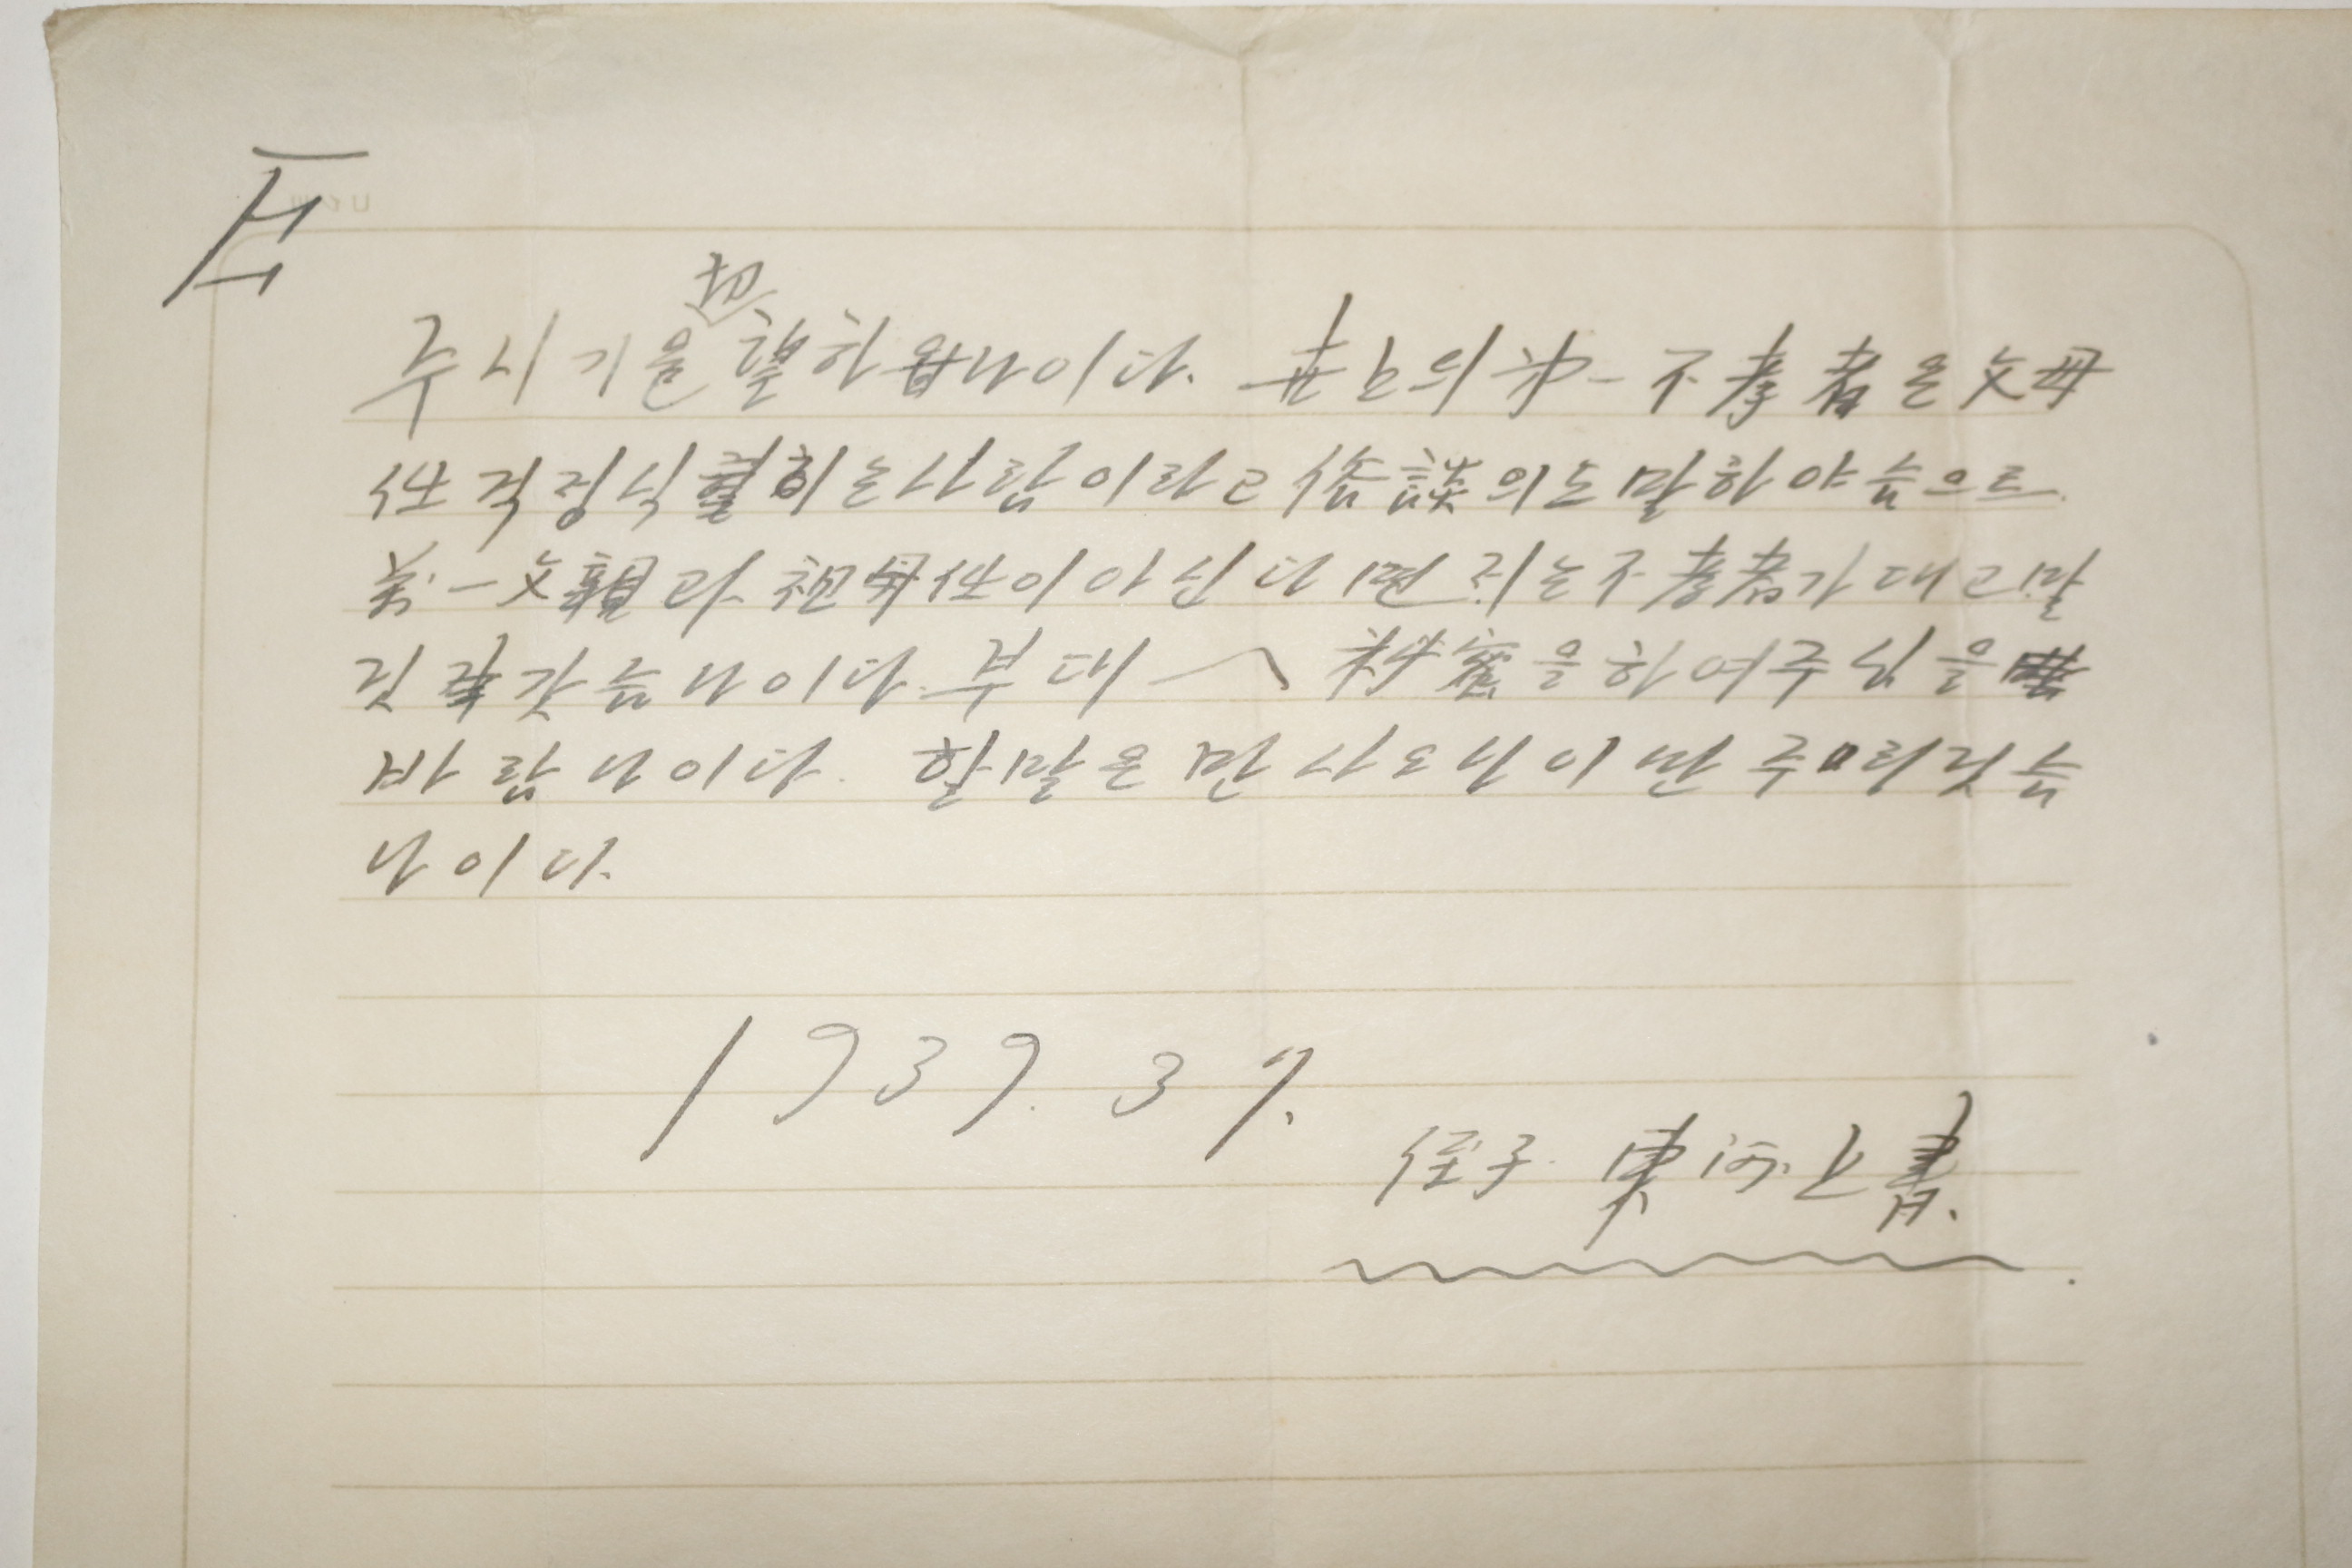 五
切
주시기을 望하옵나이다. 世上의 第一 不孝者은 父母
任 걱정식히는사람이라고 俗談의도 말하야슴으로
第一 父親과 祖母任이아신다면 저는 不孝者가대고말
것갓슴나이다. 부대 秘密을하여주심을
바람나이다. 할말은만사오나이만주리것슴
나이다.
1939. 3 7.
侄子 東河 上書.